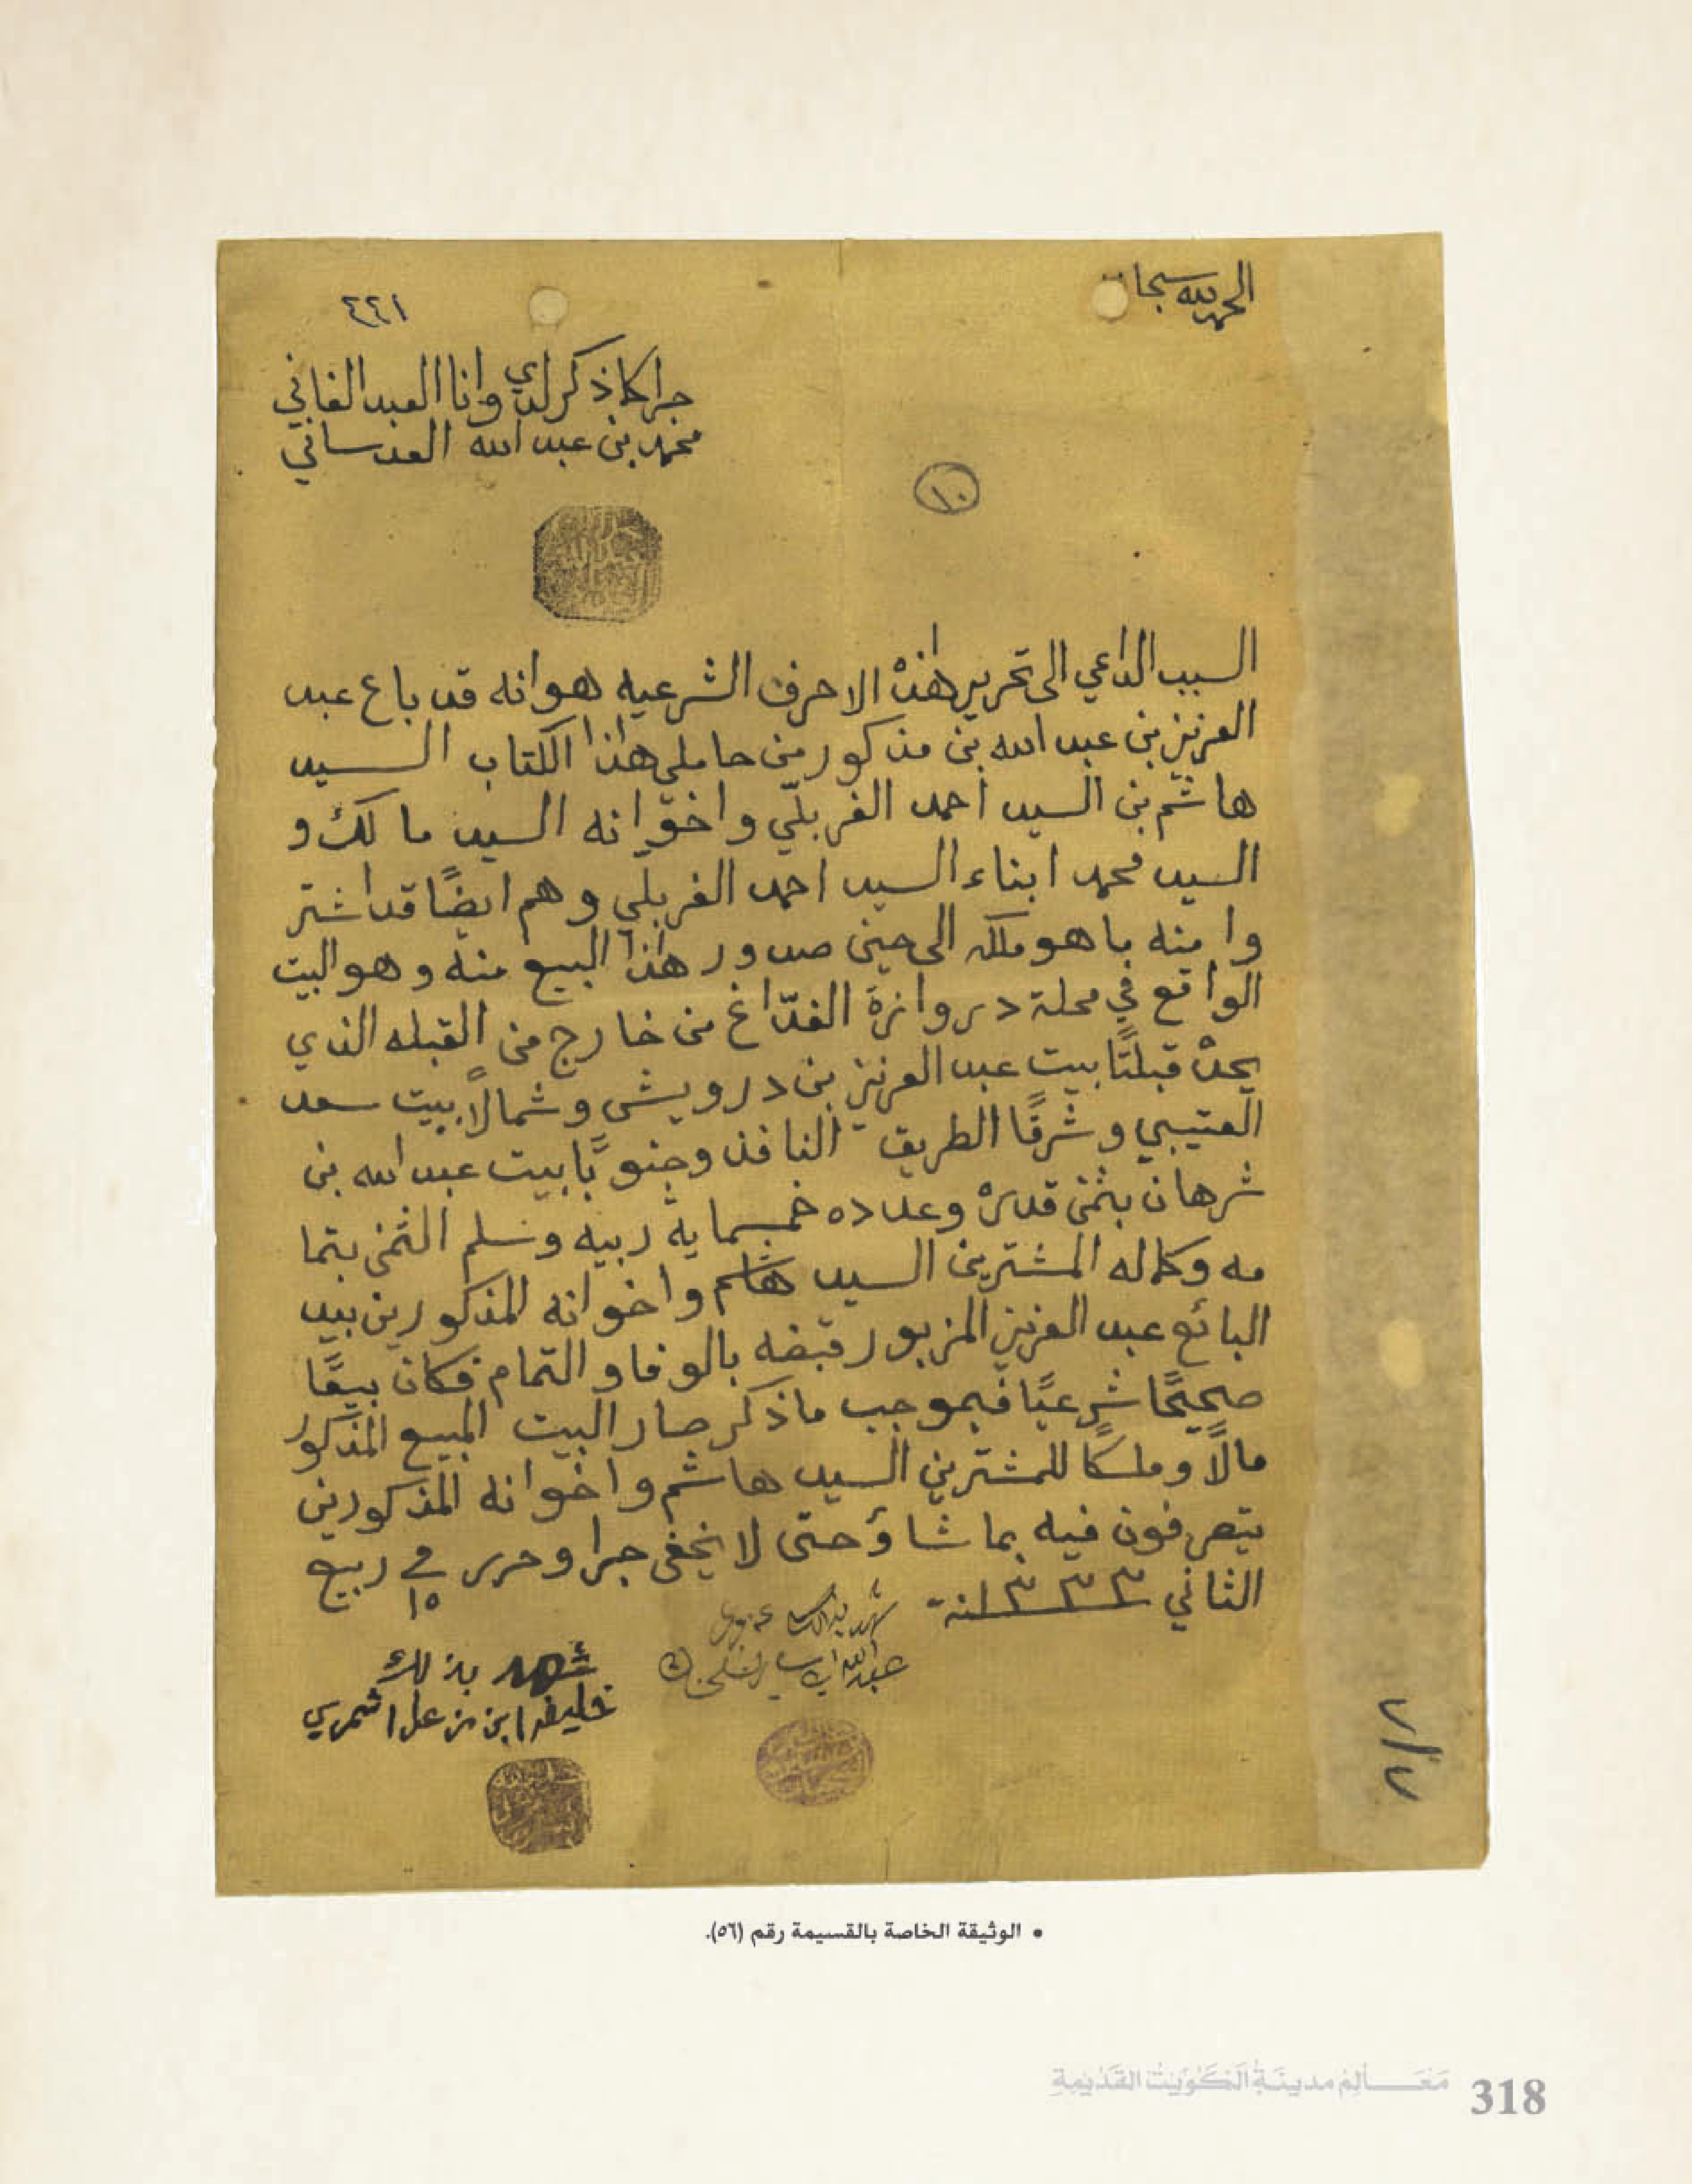 الحمد لله سبحانه
٢٢١
جرا كما ذكر لدي وانا العبد الفاني
محمد بن عبد الله العدساني
١٠
السبب الداعي الى تحرير هذه الاحرف الشرعيه هو انه قد باع عبد
العزيز بن عبد الله بن مذكور من حاملي هذا الكتاب السيد
هاشم بن السيد احمد الغربلّي واخوانه السيد مالك و
السيد محمد ابناء السيد احمد الغربلي وهم ايضًا قد اشتر
وا منه ما هو ملكه الى حين صدور هذا البيع منه وهو البيت
الواقع في محلة دروازة الفدّاغ من خارج من القبله الذي
يحده قبلتًا بيت عبد العزيز بن درويش وشمالًا بيت سعد
العتيبي وشرقًا الطريق النافذ وجنوبًا بيت عبد الله بن
شرهان بثمن قدره وعدده خمسماية ربيه وسلم الثمن بتما
مه وكماله المشترين السيد هاشم واخوانه المذكورين بيد
البائع عبد العزيز المزبور قبضه بالوفا والتمام فكان بيعًا
صحيحًا شرعيًا فبموجب ما ذكر صار البيت المبيع المذكور
مالًا وملكًا للمشترين السيد هاشم واخوانه المذكورين
يتصرفون فيه بما شاؤ حتى لا يخفى جرا وحرر في ١٥ ربيع
الثاني سنة ١٣٣٣
شهد بذلك
شهد بذلك
خليفه ابن مزعل اشمري
٧/٧
• الوثيقة الخاصة بالقسيمة رقم (٥٦).
مَعَالِمُ مدينَةِ الكُوَيْتِ القَدِيْمَةِ
318